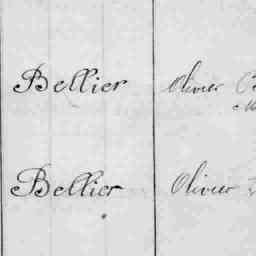 Bellier Olivier
Bellier Olivier